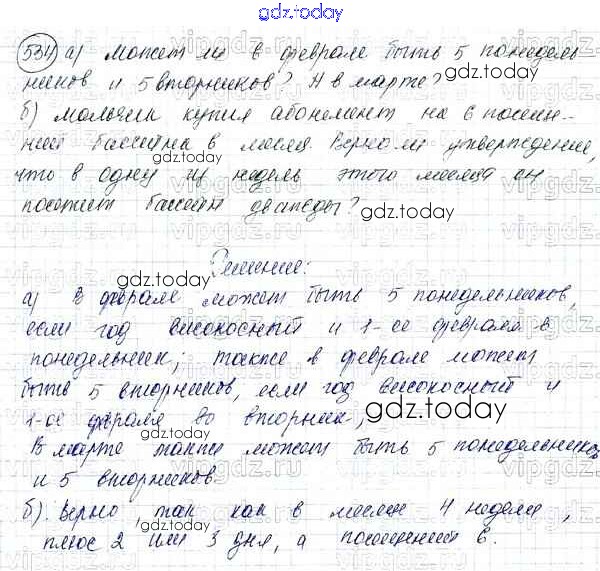 gdz.today
534 а) Может ли в феврале быть 5 понедель-
ников и 5 вторников? А в марте?
б) Мальчик купил абонемент на 6 посеще-
ний бассейна в месяц. Верно ли утверждение,
gdz.today
что в одну из недель этого месяца он
посетит бассейн дважды?
gdz.today
Решение:
gdz.today
а) В феврале может быть 5 понедельников,
если год високосный и 1-ое февраля в
понедельник; также в феврале может
быть 5 вторников, если год високосный и
gdz.today
1-ое февраля во вторник;
В марте также может быть 5 понедельников
и 5 вторников
gdz.today
б). Верно, так как в месяце 4 недели,
плюс 2 или 3 дня, а посещений 6.